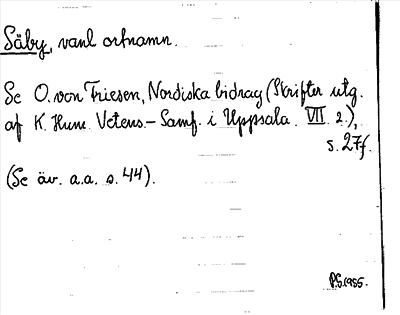 Säby, vanl ortnamn.
Se O. von Friesen, Nordiska bidrag (Skrifter utg.
af K. Hum. Vetens.-Samf. i Uppsala. VII. 2.),
s. 27f.
(Se äv. a.a. s. 44).
P.S. 1955.